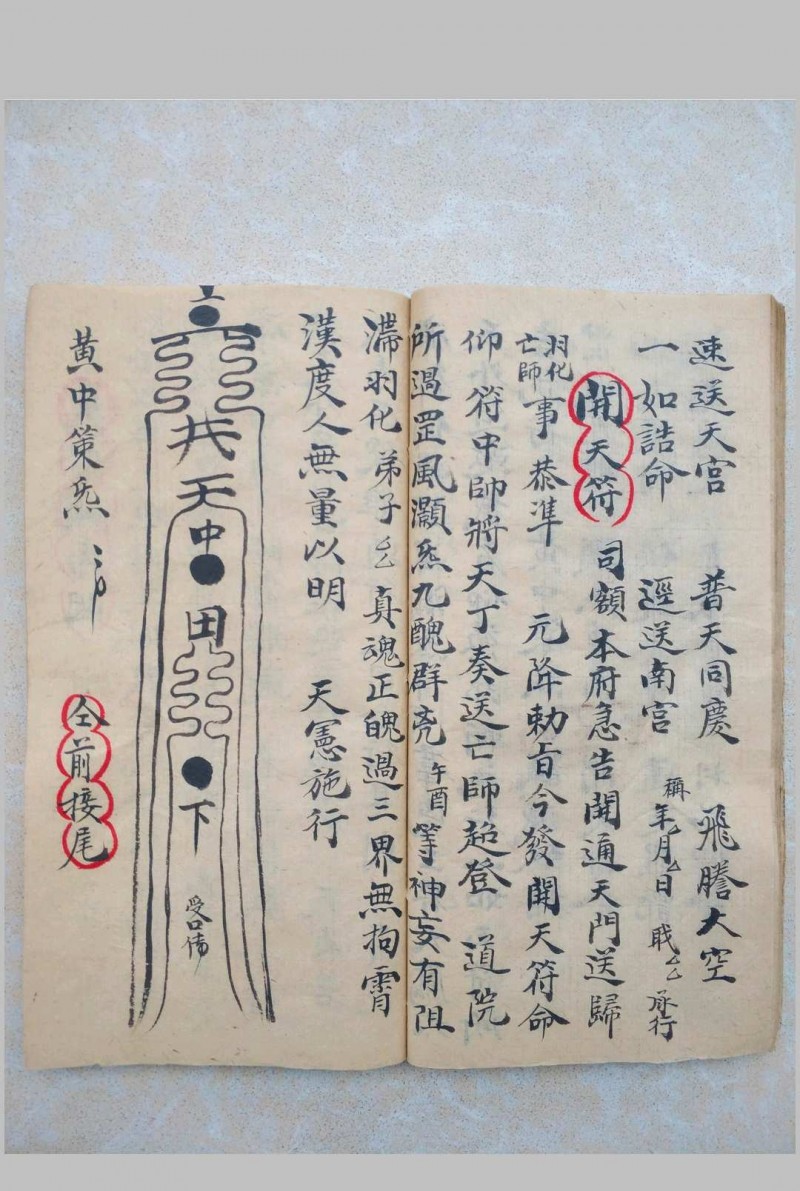 速送天宮 普天同慶 飛騰大空
一如誥命 逕送南宮 稱年厶月厶日 職厶厶承行
開天符 司額本府急告開通天門送歸
羽化亡師事 恭準 元降勅旨今發開天符命
仰符中帥將天丁奏送亡師超登 道院
所過罡風灝炁九醜群兇 午酉 等神妄有阻
滯羽化 弟子厶厶 真魂正魄過三界無拘霄
漢度人無量以明 天憲施行
天
中
田
下
受口
黃中策炁
仝前接尾